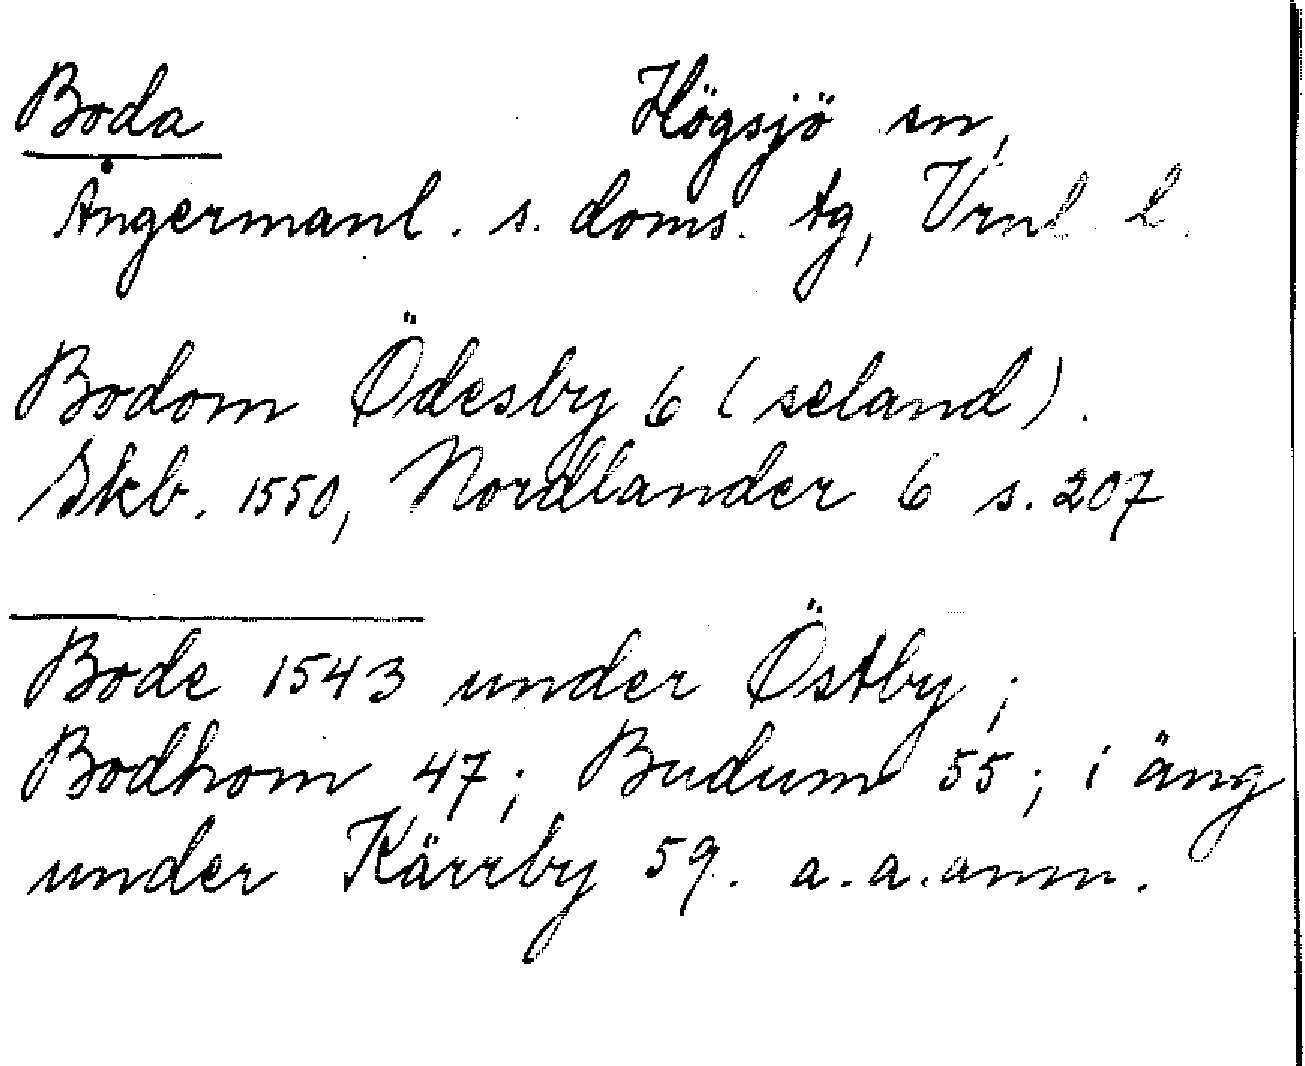 Boda Högsjö sn,
Ångermanl. s. doms. tg, Vrnl l.
Bodom Ödesby 6 (seland).
Skb. 1550, Nordlander 6 s. 207
Bode 1543 under Östby;
Bodhom 47; Budum 55; i äng
under Kärrby 59. a.a. anm.